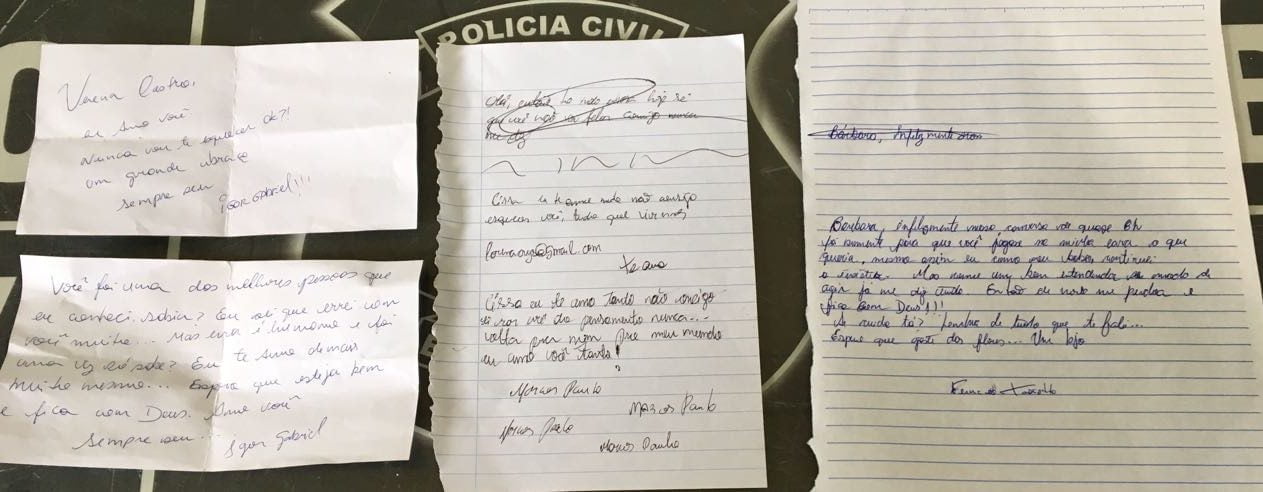 POLICIA CIVIL
Verena Castro,
eu Amo você
Nunca vou te esquecer ok?!
um grande abraço
sempre seu Igor Gabriel!!!
Você foi uma dos melhores pessoas que
eu conheci. Sabia? Eu sei que errei com
você muito... Mas errar é humano e foi
uma vez só sabe? Eu te Amo demais
muito mesmo... Espero que esteja bem
e fica com Deus. Amo você
Sempre seu... Igor Gabriel
Olá,
que você não falar comigo nunca
me diz
Cissa eu te amo não consigo
esquecer você, tudo que vivemos
@gmail.com
te amo
Cissa eu te amo tanto não consigo
você do pensamento nunca...
volta por mim meu mundo
eu amo você tanto!
Marcos Paulo
Marcos Paulo
Marcos Paulo
Marcos Paulo
Bárbara, infelizmente
Barbara, infelizmente nossa conversa de quase 8h
foi somente para que você jogasse na minha cara o que
queria, mesmo assim eu como seu continuei
Mas nunca um bem o modo de
agir já me diz tudo. Então de novo me perdoa e
fica bem Deus!!!
Se cuida tá? Lembra de tudo que te falei...
Espero que goste das flores... Um bjo